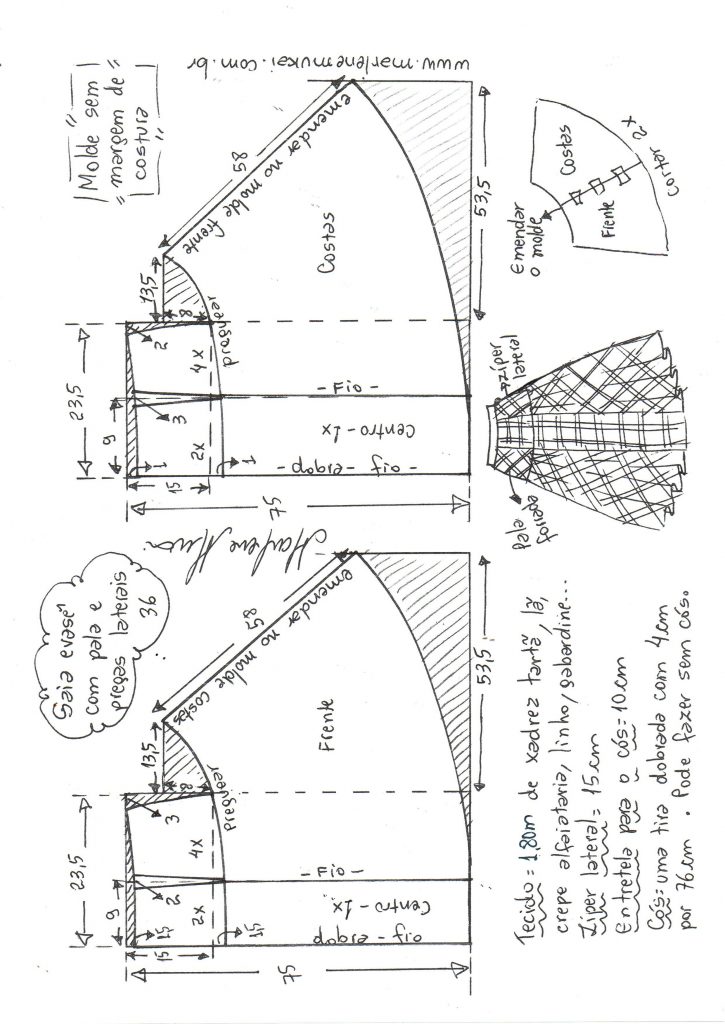 Saia evasê
com pala e
pregas laterais
36
"Molde sem
margem de
costura"
www.marlenemukai.com.br
23,5
13,5
9
15
1,5
2
3
8
2x
4x
1,5
Preguear
58
emendar no molde costas
Frente
Fio
Centro - 1x
dobra - fio
75
53,5
23,5
13,5
9
15
1
3
2
8
2x
4x
1
Preguear
58
emendar no molde frente
Costas
Fio
Centro - 1x
dobra - fio
75
53,5
Tecido = 1,80m de xadrez tartã, lã,
crepe alfaiataria, linho, gabardine...
Zíper lateral = 15cm
Entretela para o cós = 10cm
Cós = uma tira dobrada com 4cm
por 76cm. Pode fazer sem cós.
Pala
forrada
zíper
lateral
Emendar
o molde
Frente
Costas
Cortar 2x